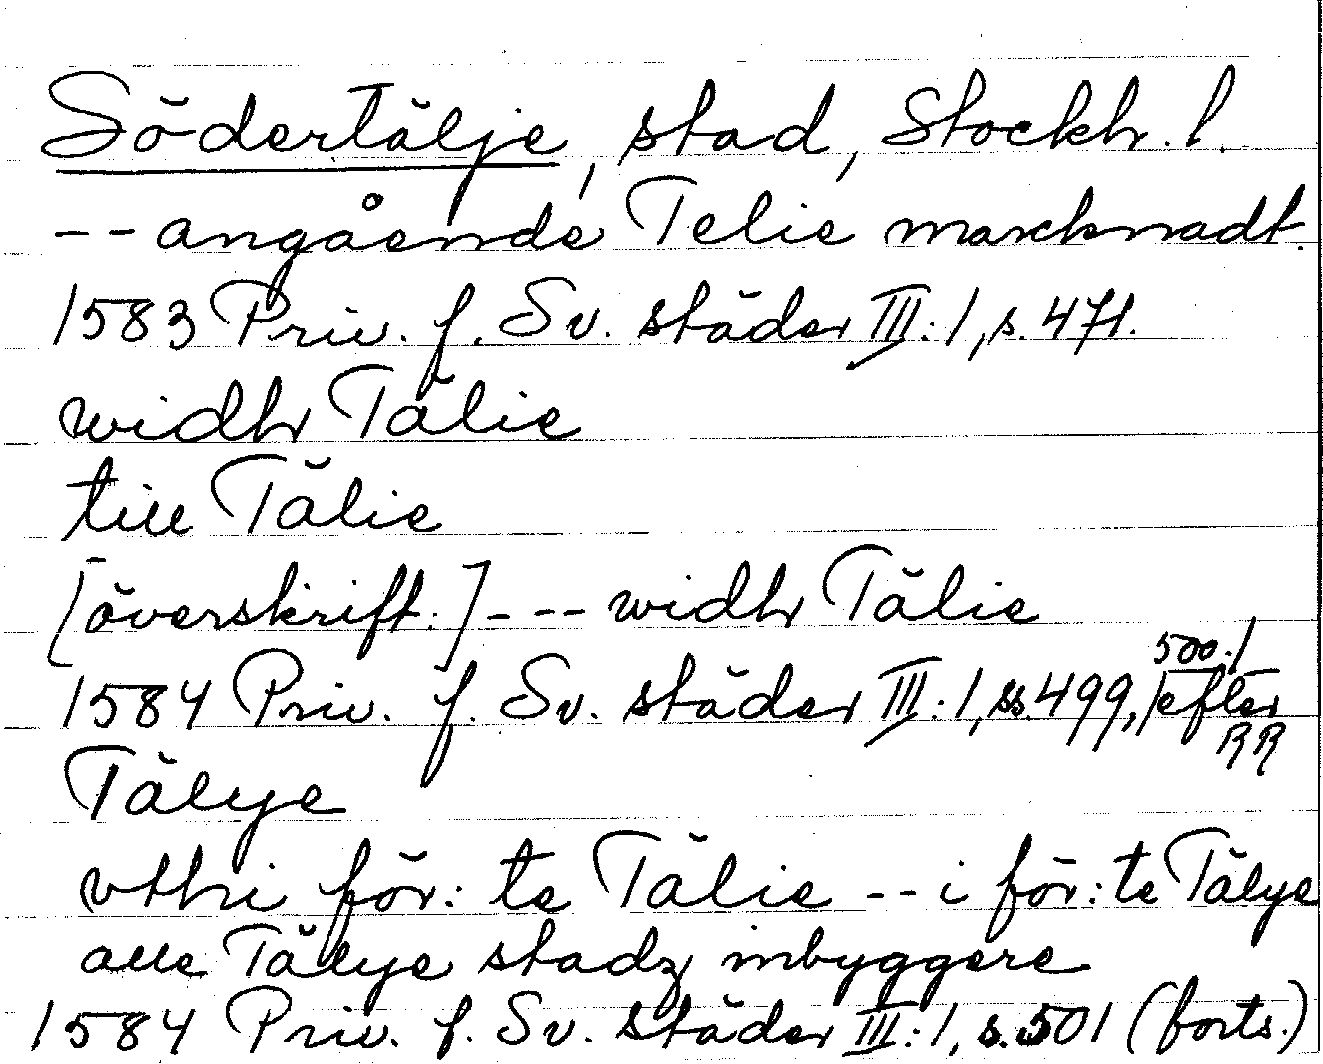 Södertälje, stad, Stockh. l.
-- angående Telie marcknadt.
1583 Priv. f. Sv. städer III:1, s. 471.
widh Tälie
till Tälie
[överskrift:] --- widh Tälie
1584 Priv. f. Sv. städer III:1, ss. 499, 500./ efter RR
Tälye
vthi för:te Tälie -- i för:te Tälye
alle Tälye stadz inbyggere
1584 Priv. f. Sv. städer III:1, s. 501 (forts.)